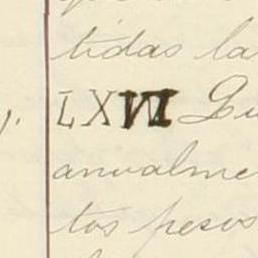 tidas la
LXVI Lu
anualme
tos pesos